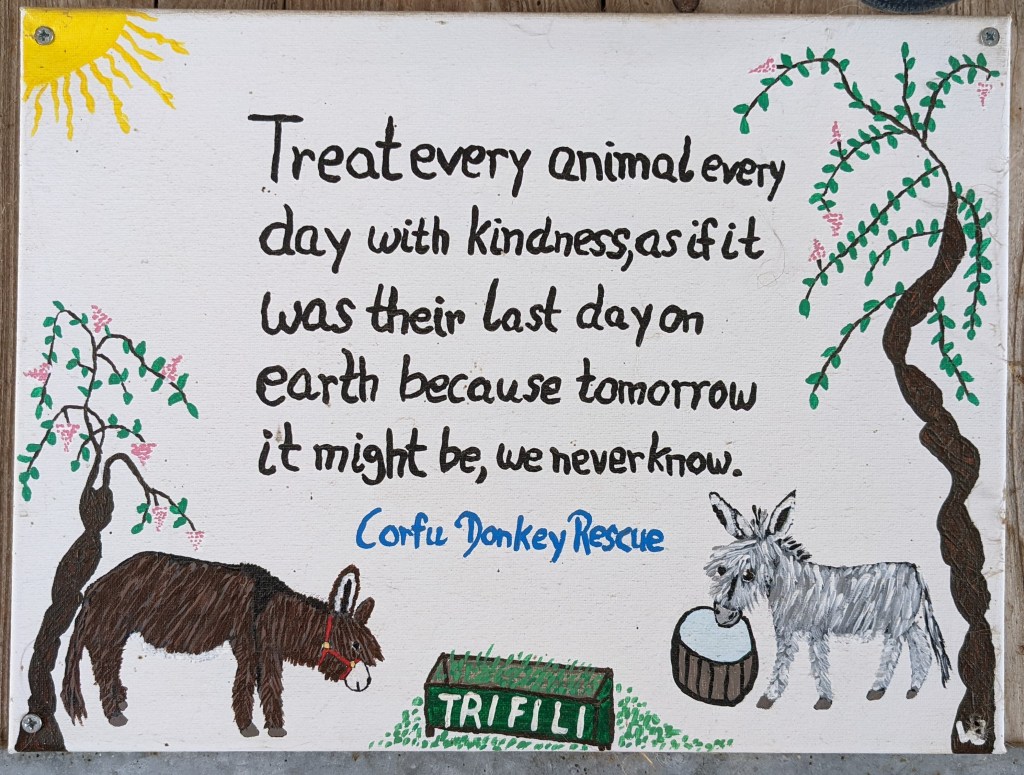 Treat every animal every
day with kindness, as if it
was their last day on
earth because tomorrow
it might be, we never know.
Corfu Donkey Rescue
TRIFILI